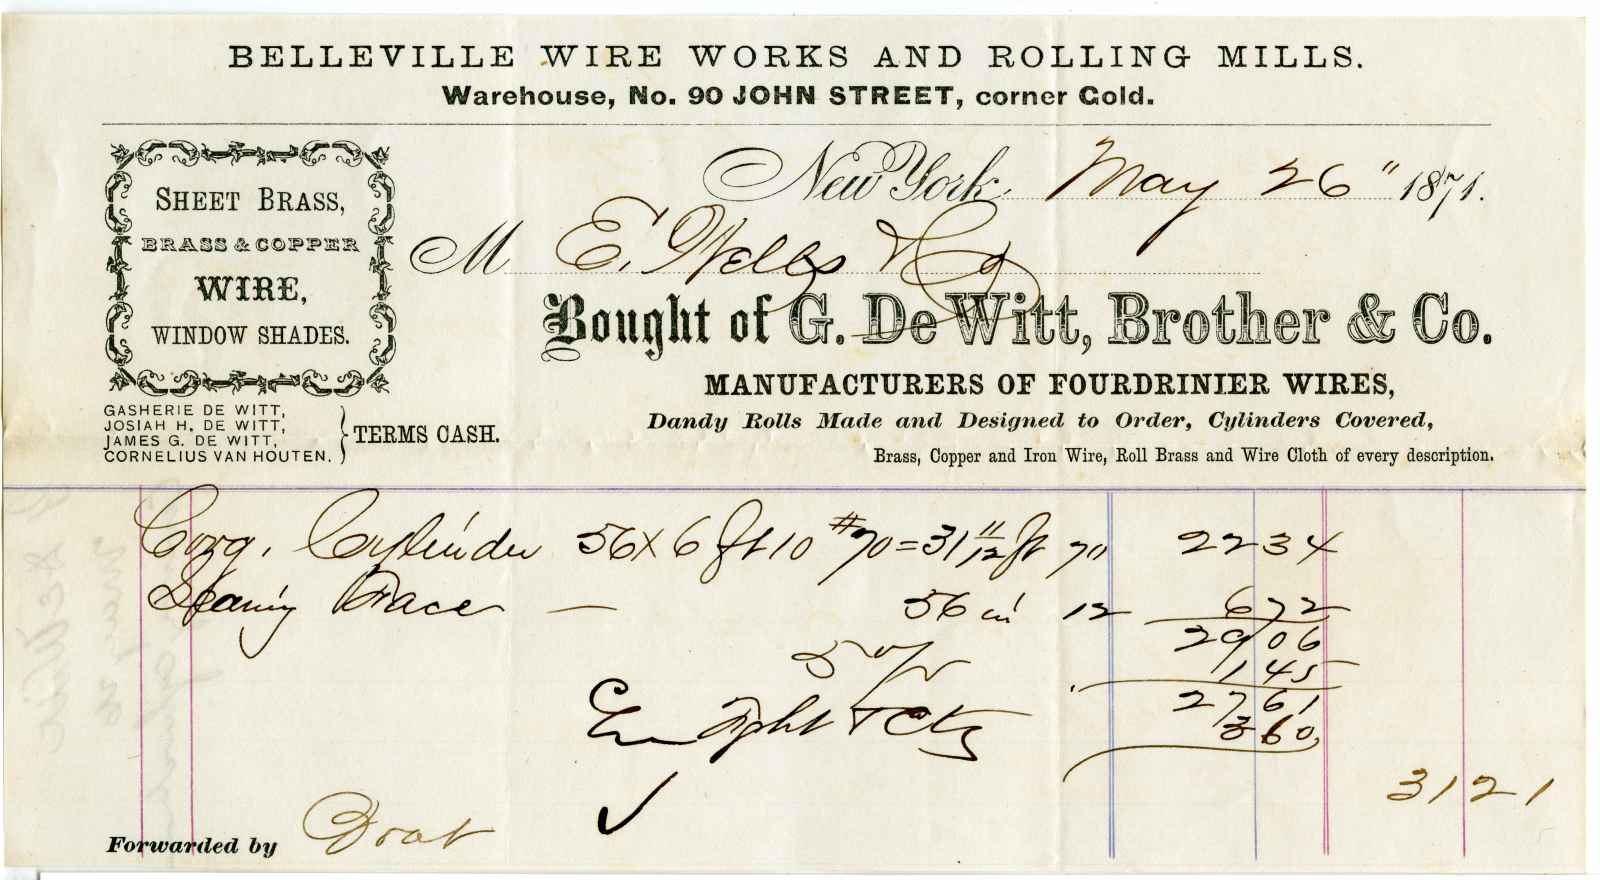 BELLEVILLE WIRE WORKS AND ROLLING MILLS.
Warehouse, No. 90 JOHN STREET, corner Gold.
SHEET BRASS,
BRASS & COPPER
WIRE,
WINDOW SHADES.
GASHERIE DE WITT,
JOSIAH H. DE WITT,
JAMES G. DE WITT,
CORNELIUS VAN HOUTEN.
TERMS CASH.
New York, May 26" 1871.
M E. Wells & Co
Bought of G. De Witt, Brother & Co.
MANUFACTURERS OF FOURDRINIER WIRES,
Dandy Rolls Made and Designed to Order, Cylinders Covered,
Brass, Copper and Iron Wire, Roll Brass and Wire Cloth of every description.
Covg. Cylinder 56 x 6 ft 10 #70 = 31 11/12 ft 70 2234
Face — 56 in 12 672
2906
5 % 145
2761
& Ctg 360
3121
Forwarded by Boat